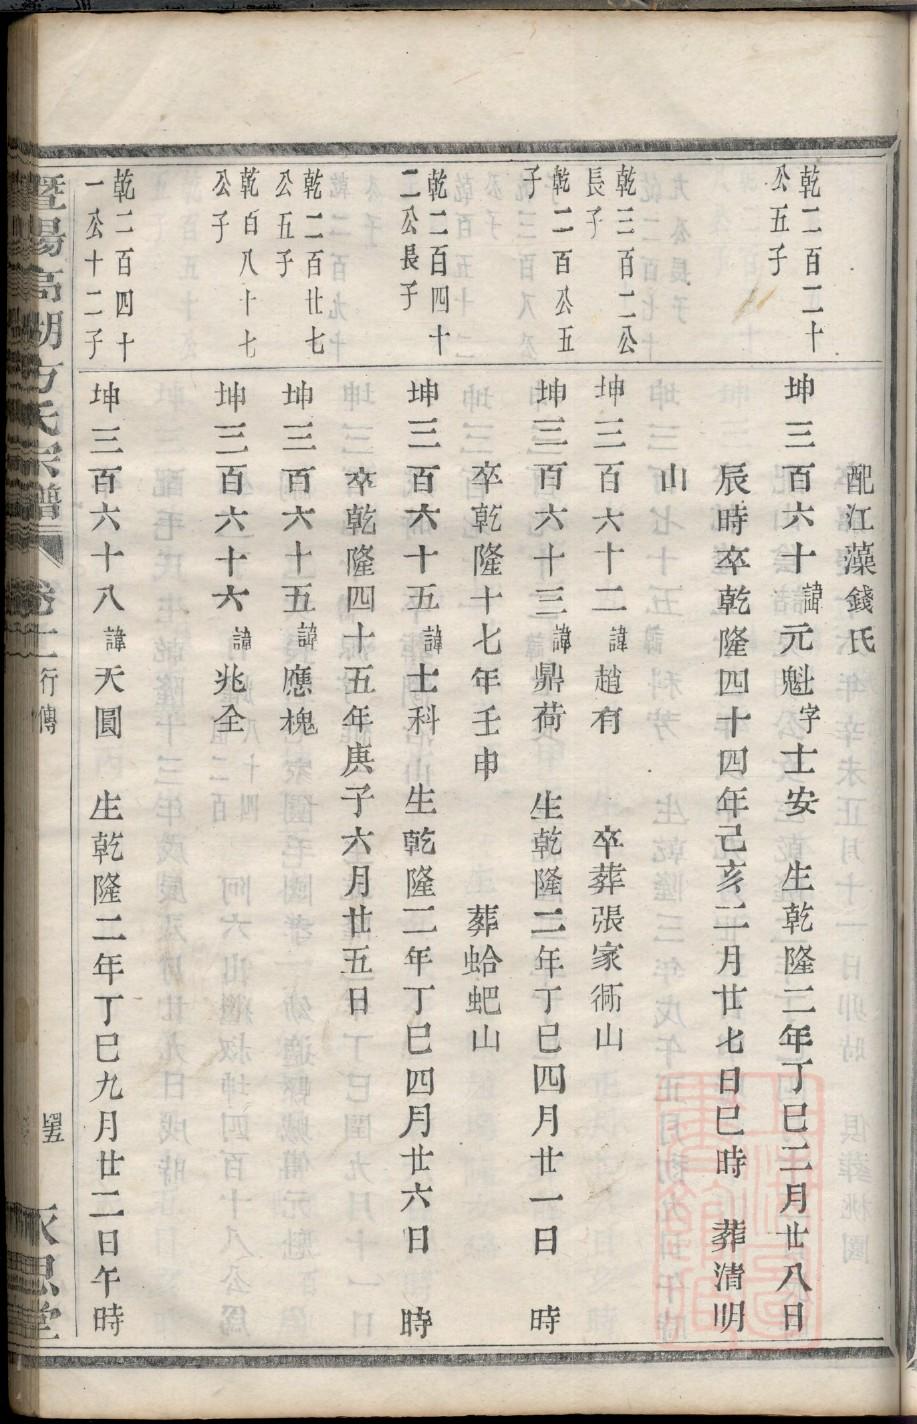 配江藻錢氏
乾二百二十
公五子
坤三百六十諱元魁字士安　生乾隆二年丁巳二月廿八日
辰時卒乾隆四十四年己亥二月廿七日巳時　葬清明
山
乾三百二公
長子
坤三百六十二諱趙有　卒葬張家衕山
乾二百公五
子
坤三百六十三諱鼎荷　生乾隆二年丁巳四月廿一日　時
卒乾隆十七年壬申　葬蛤蚆山
乾二百四十
二公長子
坤三百六十五諱士科　生乾隆二年丁巳四月廿六日　時
卒乾隆四十五年庚子六月廿五日
乾二百廿七
公五子
坤三百六十五諱應槐
乾百八十七
公子
坤三百六十六諱兆全
乾二百四十
一公十二子
坤三百六十八諱天圓　生乾隆二年丁巳九月廿二日午時
暨陽高湖方氏宗譜　卷十　行傳